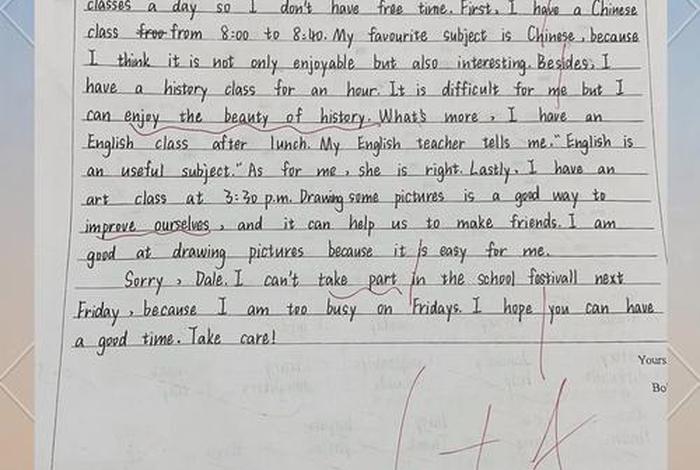 classes a day so I don't have free time. First, I have a Chinese
class free from 8:00 to 8:40. My favourite subject is Chinese, because
I think it is not only enjoyable but also interesting. Besides, I
have a history class for an hour. It is difficult for me but I
can enjoy the beauty of history. What's more, I have an
English class after lunch. My English teacher tells me."English is
an useful subject." As for me, she is right. Lastly, I have an
art class at 3:30 p.m. Drawing some pictures is a good way to
improve ourselves, and it can help us to make friends. I am
good at drawing pictures because it is easy for me.
Sorry, Dale. I can't take part in the school festivall next
Friday, because I am too busy on Fridays. I hope you can have
a good time. Take care!
Yours
Bo